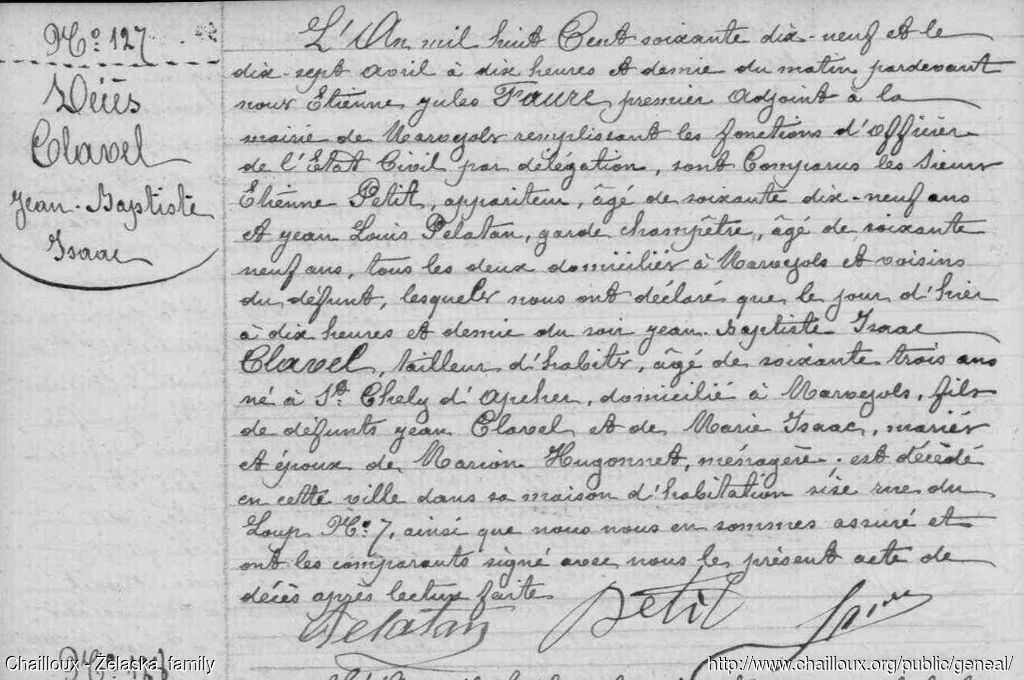 N° 127
Décès
Clavel
Jean-Baptiste
Isaac
L'An mil huit Cent soixante dix-neuf et le
dix-sept avril à dix heures et demie du matin pardevant
nous Etienne Jules Faure premier adjoint à la
mairie de Marvejols remplissant les fonctions d'officier
de l'Etat Civil par délégation, sont Comparus les Sieurs
Etienne Petit, appariteur, âgé de soixante dix-neuf ans
et Jean Louis Pelatan, garde champêtre, âgé de soixante
neuf ans, tous les deux domiciliés à Marvejols et voisins
du défunt, lesquels nous ont déclaré que le jour d'hier
à dix heures et demie du soir Jean-Baptiste Isaac
Clavel, tailleur d'habits, âgé de soixante trois ans
né à St. Chely d'Apcher, domicilié à Marvejols, fils
de défunts Jean Clavel et de Marie Isaac, mariés
et époux de Marion Hugonnet, ménagère, est décédé
en cette ville dans sa maison d'habitation sise rue du
Loup N° 7, ainsi que nous nous en sommes assuré et
ont les comparants signé avec nous le présent acte de
décès après lecture faite
Pelatan Petit
N° 128
Chailloux - Zelaska family
http://www.chailloux.org/public/geneal/